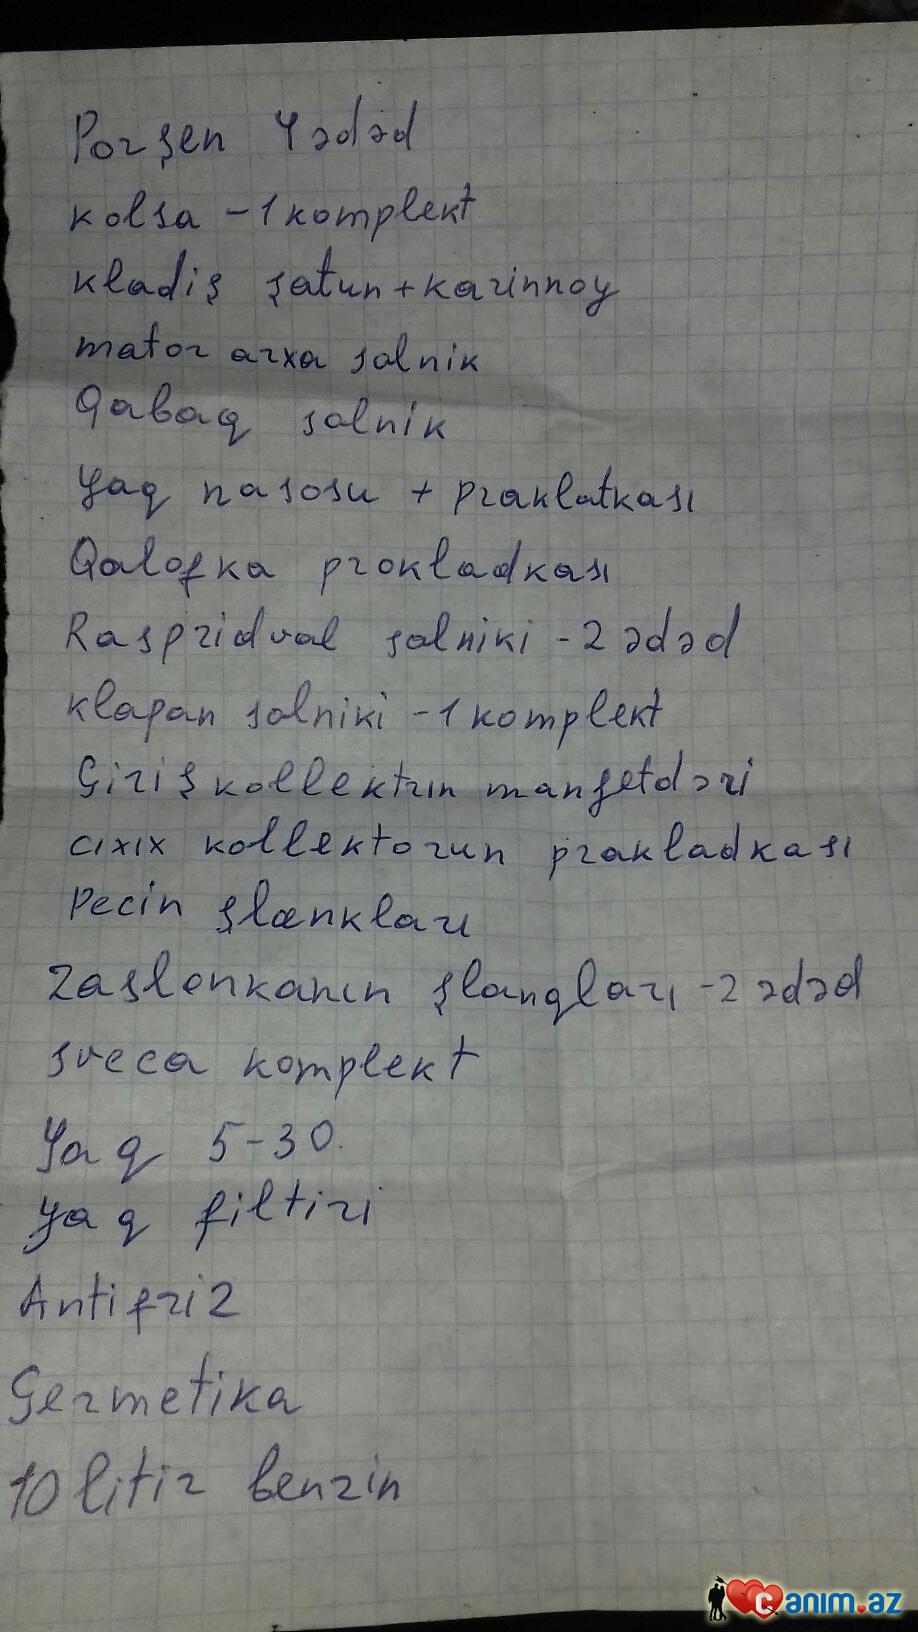 Porşen 4 ədəd
kolsa - 1 komplekt
kladiş şatun + karinnoy
mator arxa salnik
Qabaq salnik
Yaq nasosu + praklatkası
Qalofka prokladkası
Raspridval salniki - 2 ədəd
klapan salniki - 1 komplekt
Giriş kollektrın manşetdəri
cıxıx kollektorun prakladkası
Pecin şlankları
Zaslonkanın şlanqları - 2 ədəd
sveca komplekt
Yaq 5-30.
Yaq filtiri
Antifriz
Germetika
10 litir benzin
Canim.az